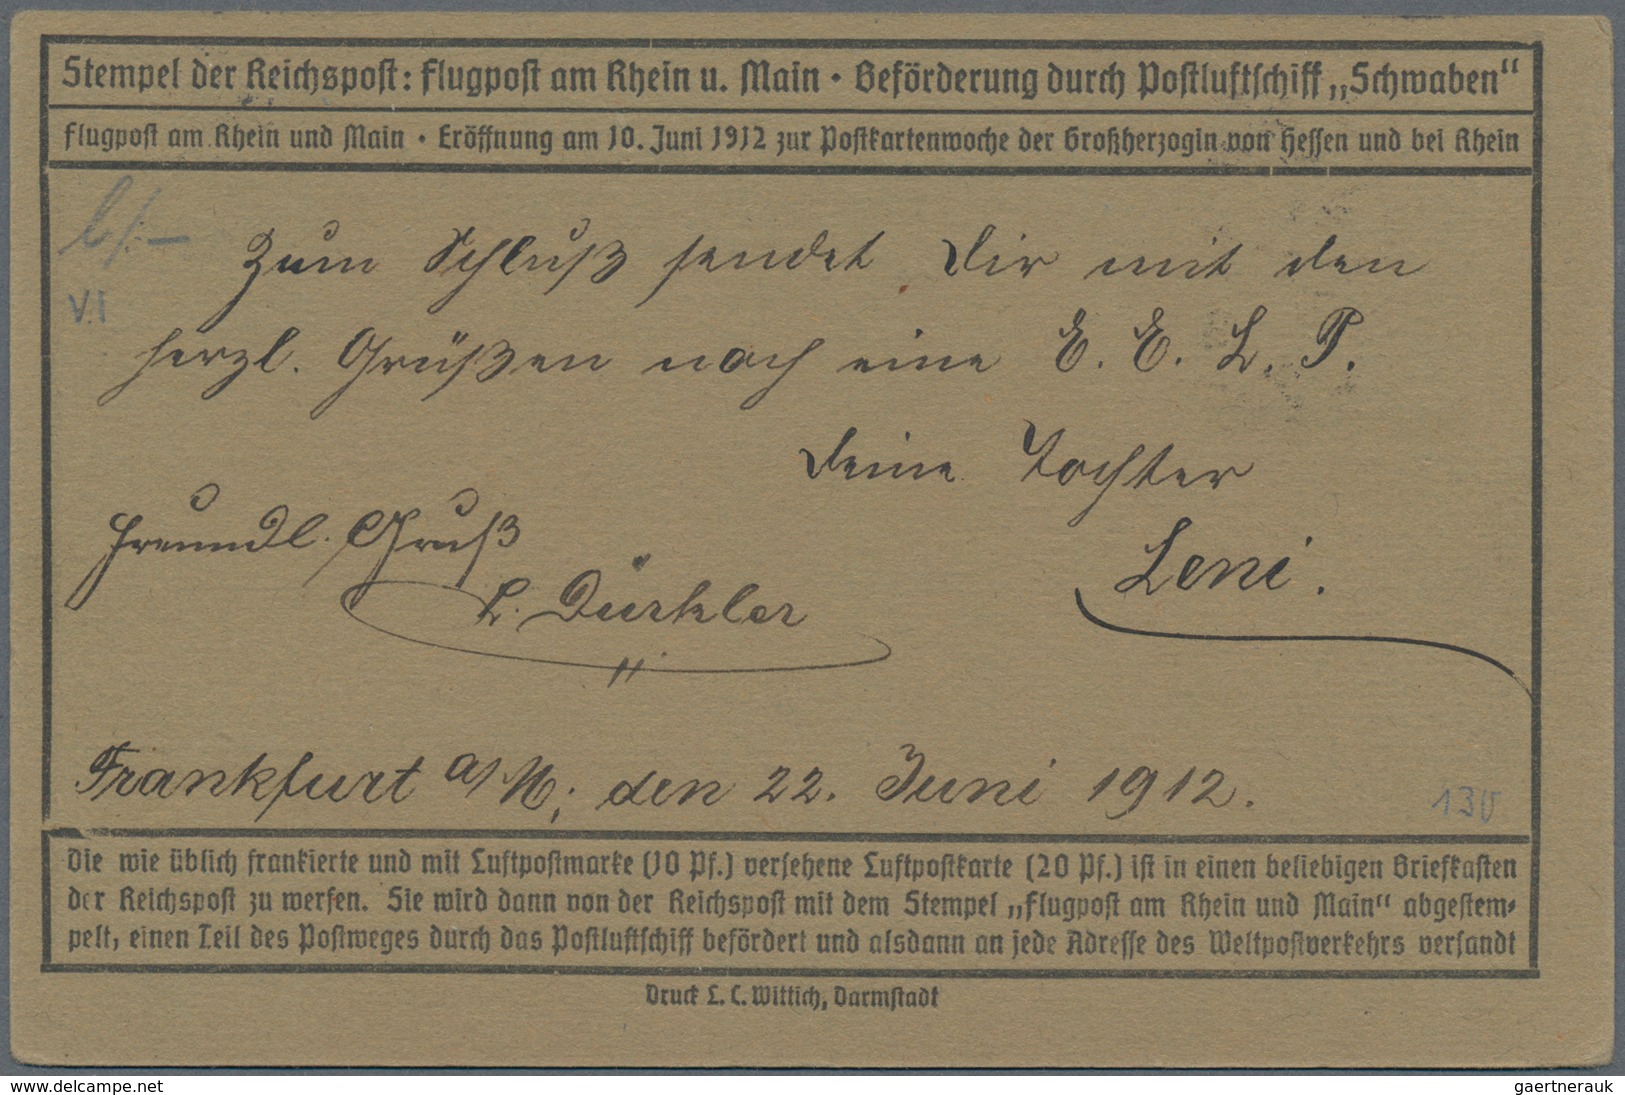 Stempel der Reichspost: Flugpost am Rhein u. Main • Beförderung durch Postluftschiff „Schwaben“
Flugpost am Rhein und Main • Eröffnung am 10. Juni 1912 zur Postkartenwoche der Großherzogin von Hessen und bei Rhein
VI
Zum Schluß sendet Dir mit den
herzl. Grüßen noch eine E. E. L. P.
Deine Tochter
Leni.
Freundl. Gruß
L. Dürkler
Frankfurt a/M; den 22. Juni 1912.
130
Die wie üblich frankierte und mit Luftpostmarke (10 Pf.) versehene Luftpostkarte (20 Pf.) ist in einen beliebigen Briefkasten
der Reichspost zu werfen. Sie wird dann von der Reichspost mit dem Stempel „Flugpost am Rhein und Main“ abgestem-
pelt, einen Teil des Postweges durch das Postluftschiff befördert und alsdann an jede Adresse des Weltpostverkehrs versandt
Druck L. C. Wittich, Darmstadt
www.delcampe.net
gaertnerauk